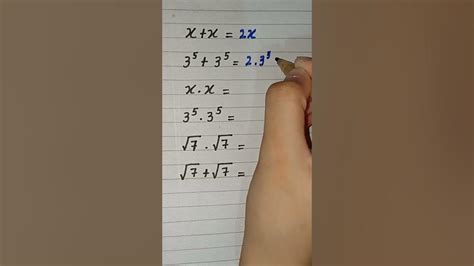 x+x = 2x
3⁵ + 3⁵ = 2.3⁵
x . x =
3⁵ . 3⁵ =
√7 . √7 =
√7 + √7 =